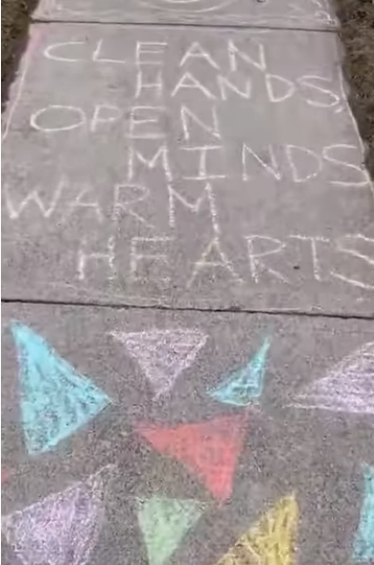 CLEAN
HANDS,
OPEN
MINDS
WARM
HEARTS